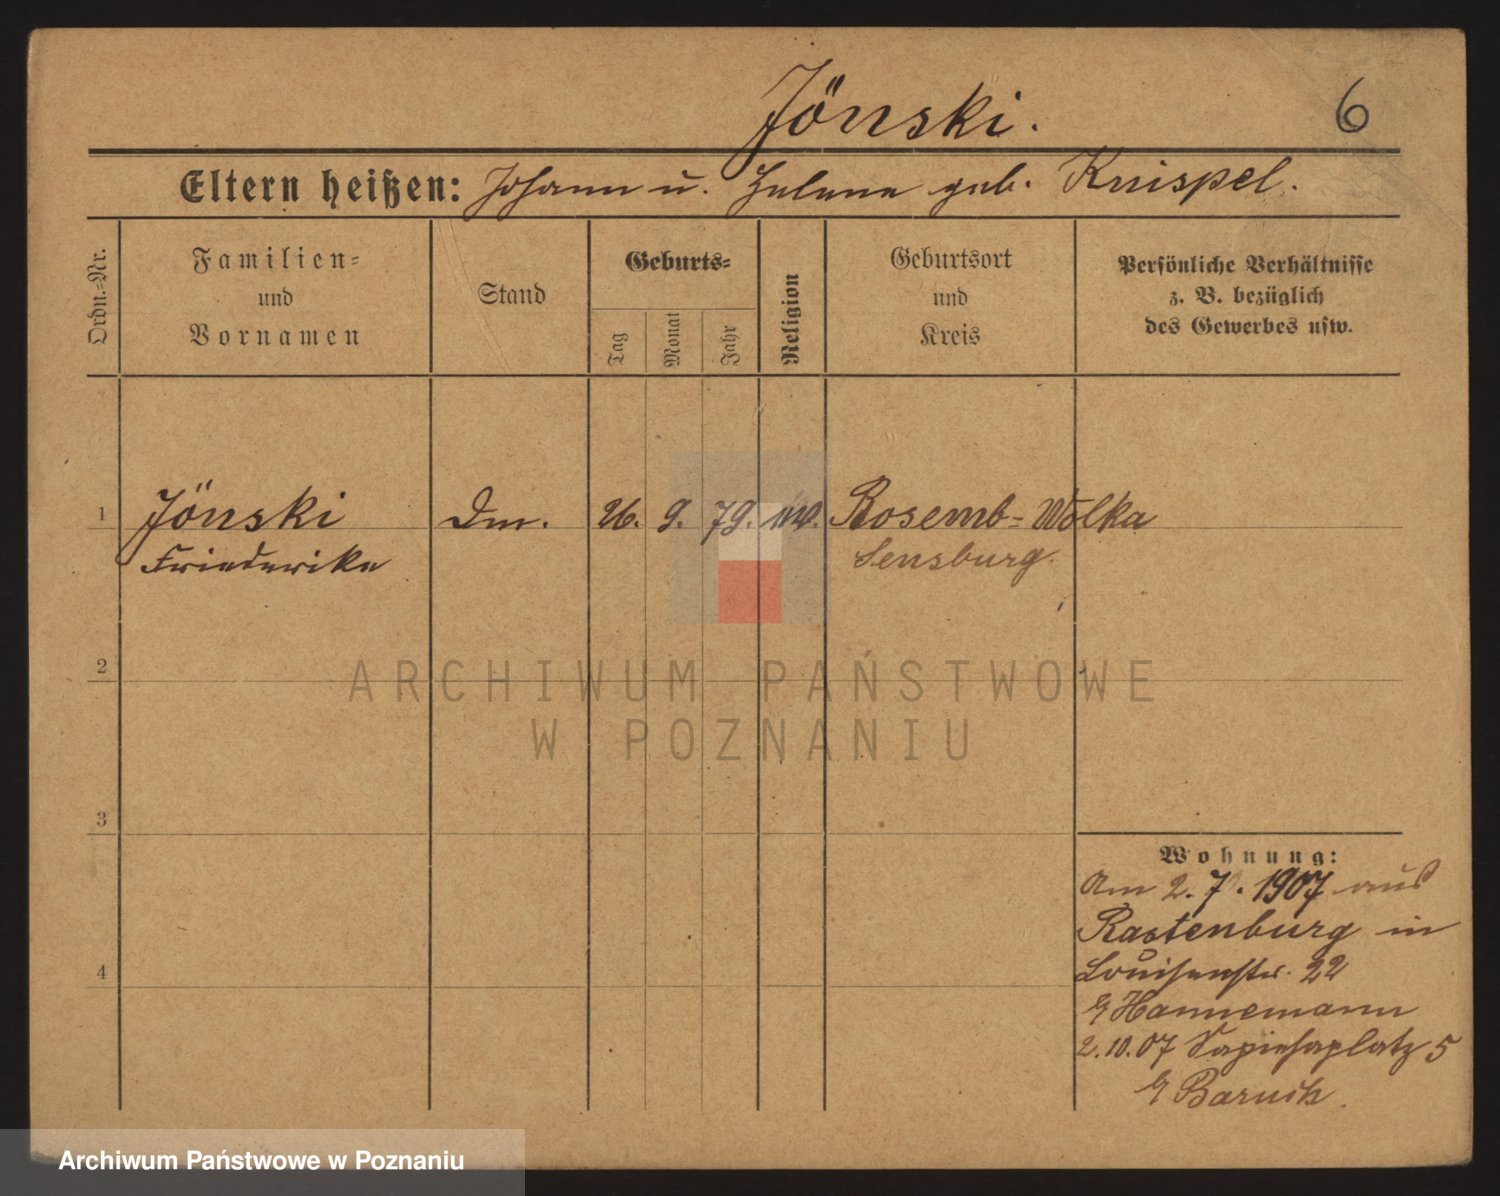 Jönski.
6
Eltern heißen: Johann u. Helene geb. Knispel.
Ordn.-Nr.
Familien-
und
Vornamen
Stand
Geburts-
Tag
Monat
Jahr
Religion
Geburtsort
und
Kreis
Persönliche Verhältnisse
z. B. bezüglich
des Gewerbes usw.
1 Jönski Dm. 26. 9. 79. ev. Wolka
Friederike Sensburg.
2
3
4
Wohnung:
Am 2. 7. 1907 aus
Rastenburg in
Louisenstr. 22
Hannemann
2. 10. 07 Sapiehaplatz 5
Baruch.
ARCHIWUM PAŃSTWOWE
W POZNANIU
Archiwum Państwowe w Poznaniu